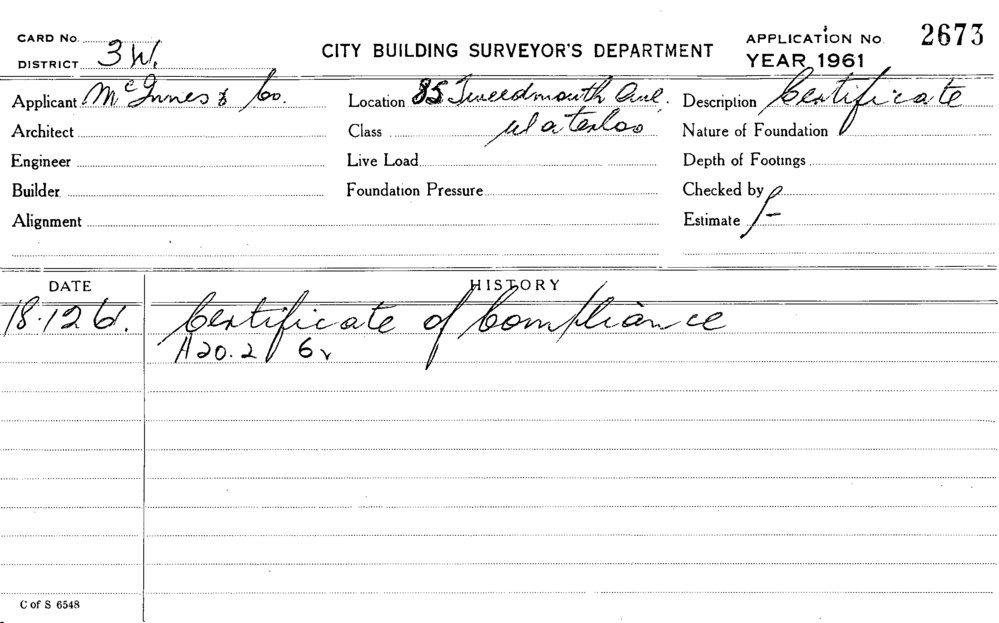 CARD No.
DISTRICT 3 W.
CITY BUILDING SURVEYOR'S DEPARTMENT
APPLICATION No. 2673
YEAR 1961
Applicant McInnes & Co. Location 85 Tweedmouth Ave. Description Certificate
Architect Class Waterloo Nature of Foundation
Engineer Live Load Depth of Footings
Builder Foundation Pressure Checked by
Alignment Estimate /-
DATE HISTORY
18.12 61. Certificate of Compliance
A20.2 6
C of S 6548